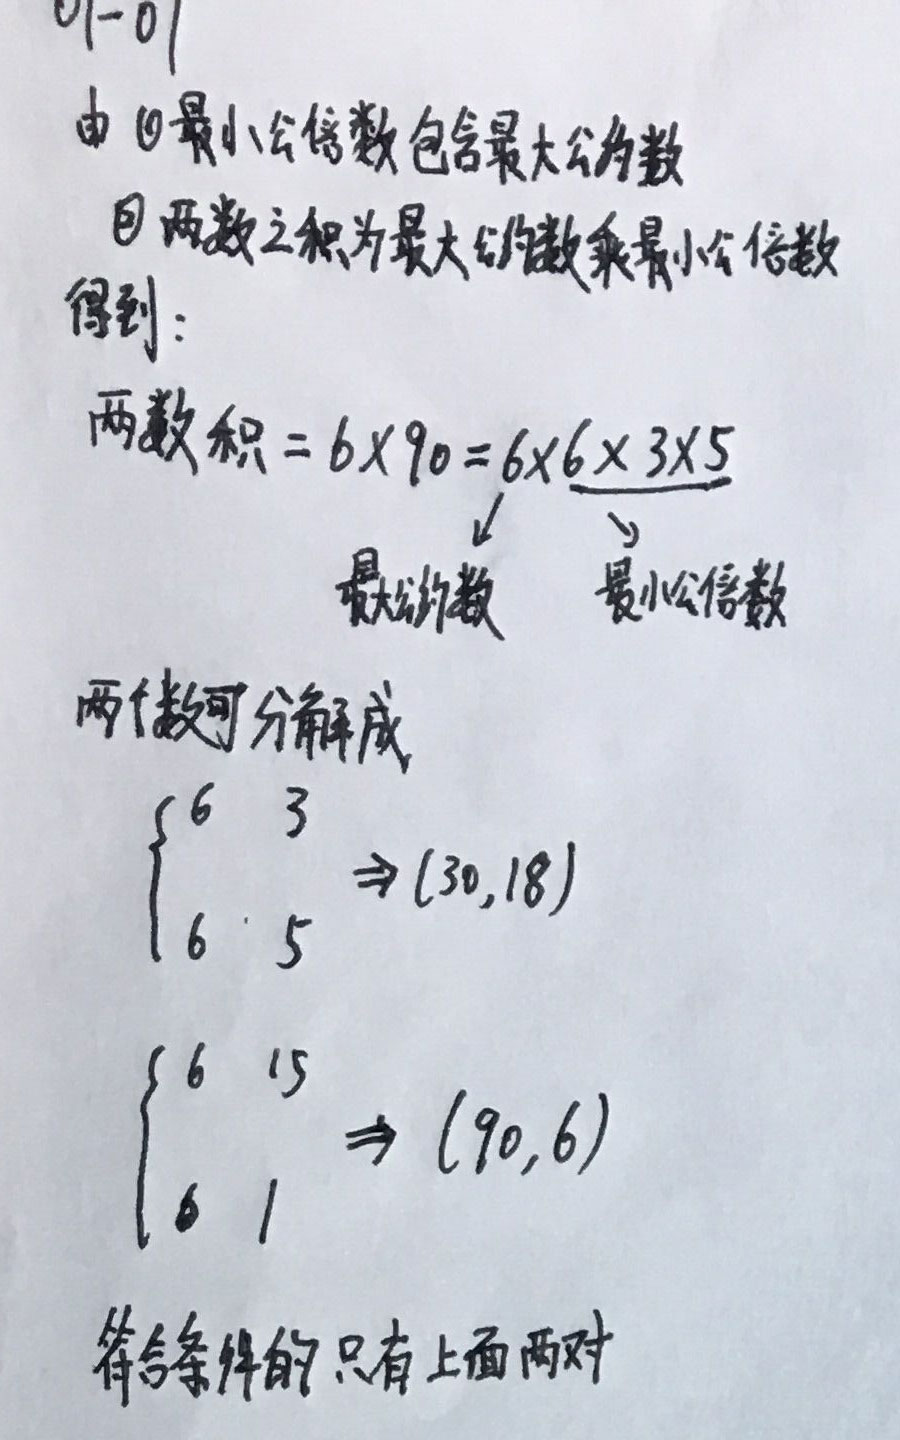 01-01
由①最小公倍数包含最大公约数
②两数之积为最大公约数乘最小公倍数
得到:
两数积=6×90=6×6×3×5
最大公约数 最小公倍数
两个数可分解成
6 3
⇒(30,18)
6 5
6 15
⇒(90,6)
6 1
符合条件的只有上面两对